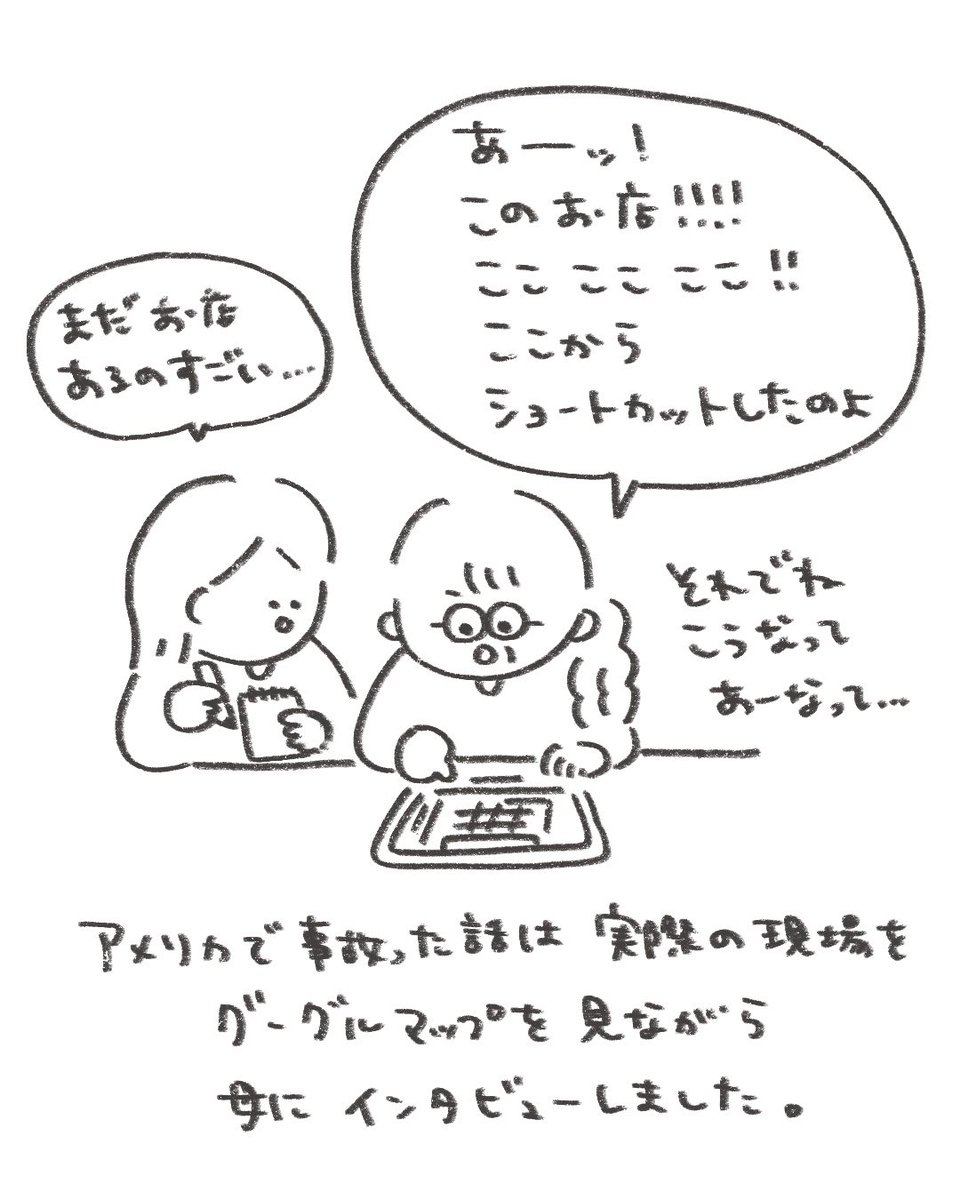 あーッ!
このお店!!!!
ここ ここ ここ!!
ここから
ショートカットしたのよ
まだお店
あるのすごい…
それでね
こうなって
あーなって…
アメリカで事故った話は 実際の現場を
グーグルマップを 見ながら
母に インタビューしました。